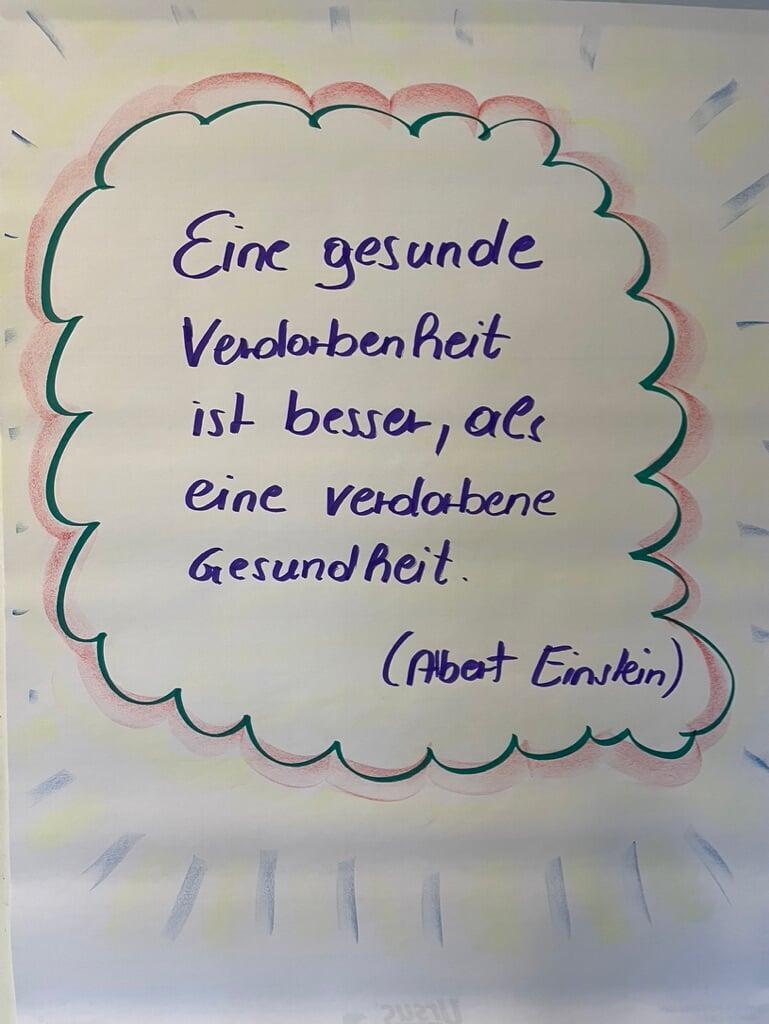 Eine gesunde
Verdorbenheit
ist besser, als
eine verdorbene
Gesundheit.
(Albert Einstein)
Ursus